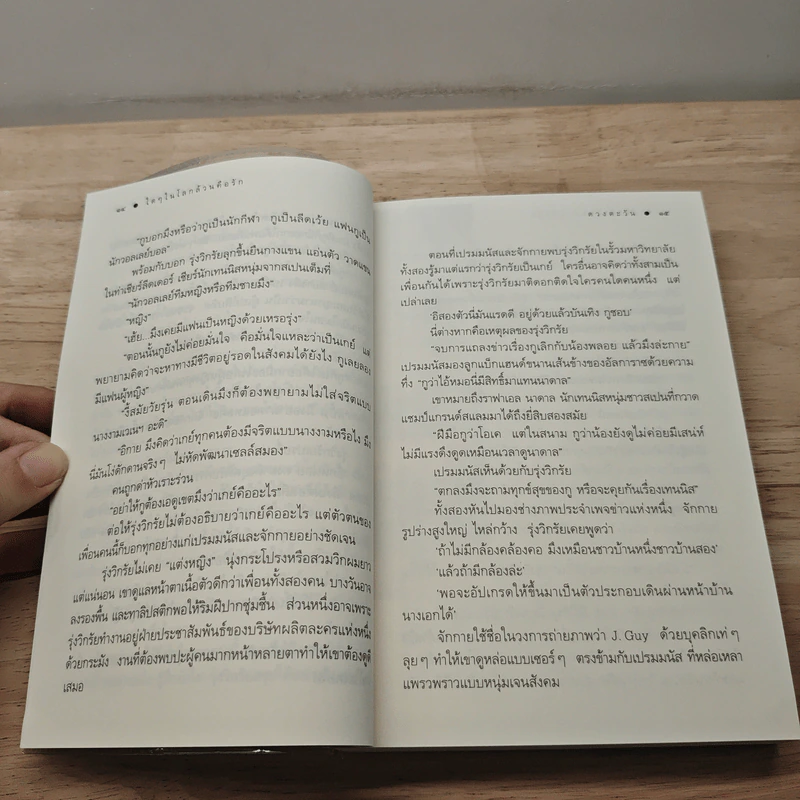 ๑๔ ● ใดๆในโลกล้วนคือรัก
“กูบอกมึงหรือว่ากูเป็นนักกีฬา กูเป็นลีดเว้ย แฟนกูเป็น
นักวอลเลย์บอล”
พร้อมกับบอก รุ่งวิกรัยลุกขึ้นยืนกางแขน แอ่นตัว วาดแขน
ในท่าเชียร์ลีดเดอร์ เชียร์นักเทนนิสหนุ่มจากสเปนเต็มที่
“นักวอลเลย์ทีมหญิงหรือทีมชายมึง”
“หญิง”
“เฮ้ย...มึงเคยมีแฟนเป็นหญิงด้วยเหรอรุ่ง”
“ตอนนั้นกูยังไม่ค่อยมั่นใจ คือมั่นใจแหละว่าเป็นเกย์ แต่
พยายามคิดว่าจะหาทางมีชีวิตอยู่รอดในสังคมได้ยังไง กูเลยลอง
มีแฟนผู้หญิง”
“งี้สมัยวัยรุ่น ตอนเดินมึงก็ต้องพยายามไม่ใส่จริตแบบ
นางงามเวเนฯ อะดิ”
“อีกาย มึงคิดว่าเกย์ทุกคนต้องมีจริตแบบนางงามหรือไง มึง
นี่มันโง่ดักดานจริงๆ ไม่หัดพัฒนาเซลล์สมอง”
คนถูกด่าหัวเราะร่วน
“อย่าให้กูต้องเอดูเขตมึงว่าเกย์คืออะไร”
ต่อให้รุ่งวิกรัยไม่ต้องอธิบายว่าเกย์คืออะไร แต่ตัวตนของ
เพื่อนคนนี้ก็บอกทุกอย่างแก่เปรมมนัสและจักกายอย่างชัดเจน
รุ่งวิกรัยไม่เคย “แต่งหญิง” นุ่งกระโปรงหรือสวมวิกผมยาว
แต่แน่นอน เขาดูแลหน้าตาเนื้อตัวดีกว่าเพื่อนทั้งสองคน บางวันอาจ
ลงรองพื้น และทาลิปสติกพอให้ริมฝีปากชุ่มชื้น ส่วนหนึ่งอาจเพราะ
รุ่งวิกรัยทำงานอยู่ฝ่ายประชาสัมพันธ์ของบริษัทผลิตละครแห่งหนึ่ง
ด้วยกระมัง งานที่ต้องพบปะผู้คนมากหน้าหลายตาทำให้เขาต้องดูดี
เสมอ
ดวงตะวัน ● ๑๕
ตอนที่เปรมมนัสและจักกายพบรุ่งวิกรัยในรั้วมหาวิทยาลัย
ทั้งสองรู้มาแต่แรกว่ารุ่งวิกรัยเป็นเกย์ ใครอื่นอาจคิดว่าทั้งสามเป็น
เพื่อนกันได้เพราะรุ่งวิกรัยมาติดอกติดใจใครคนใดคนหนึ่ง แต่
เปล่าเลย
‘อีสองตัวนี่มันแรดดี อยู่ด้วยแล้วบันเทิง กูชอบ’
นี่ต่างหากคือเหตุผลของรุ่งวิกรัย
“จบการแถลงข่าวเรื่องกูเลิกกับน้องพลอย แล้วมึงล่ะกาย”
เปรมมนัสมองลูกแบ็กแฮนด์ขนานเส้นข้างของอัลการาซด้วยความ
ทึ่ง “กูว่าไอ้หมอนี่มีสิทธิ์มาแทนนาดาล”
เขาหมายถึงราฟาเอล นาดาล นักเทนนิสหนุ่มชาวสเปนที่กวาด
แชมป์แกรนด์สแลมมาได้ถึงยี่สิบสองสมัย
“ฝีมือกูว่าโอเค แต่ในสนาม กูว่าน้องยังดูไม่ค่อยมีเสน่ห์
ไม่มีแรงดึงดูดเหมือนเวลาดูนาดาล”
เปรมมนัสเห็นด้วยกับรุ่งวิกรัย
“ตกลงมึงจะถามทุกข์สุขของกู หรือจะคุยกันเรื่องเทนนิส”
ทั้งสองหันไปมองช่างภาพประจำเพจข่าวแห่งหนึ่ง จักกาย
รูปร่างสูงใหญ่ ไหล่กว้าง รุ่งวิกรัยเคยพูดว่า
‘ถ้าไม่มีกล้องคล้องคอ มึงเหมือนชาวบ้านหนึ่งชาวบ้านสอง’
‘แล้วถ้ามีกล้องล่ะ’
‘พอจะอัปเกรดให้ขึ้นมาเป็นตัวประกอบเดินผ่านหน้าบ้าน
นางเอกได้’
จักกายใช้ชื่อในวงการถ่ายภาพว่า J. Guy ด้วยบุคลิกเท่ๆ
ลุยๆ ทำให้เขาดูหล่อแบบเซอร์ๆ ตรงข้ามกับเปรมมนัส ที่หล่อเหลา
แพรวพราวแบบหนุ่มเจนสังคม